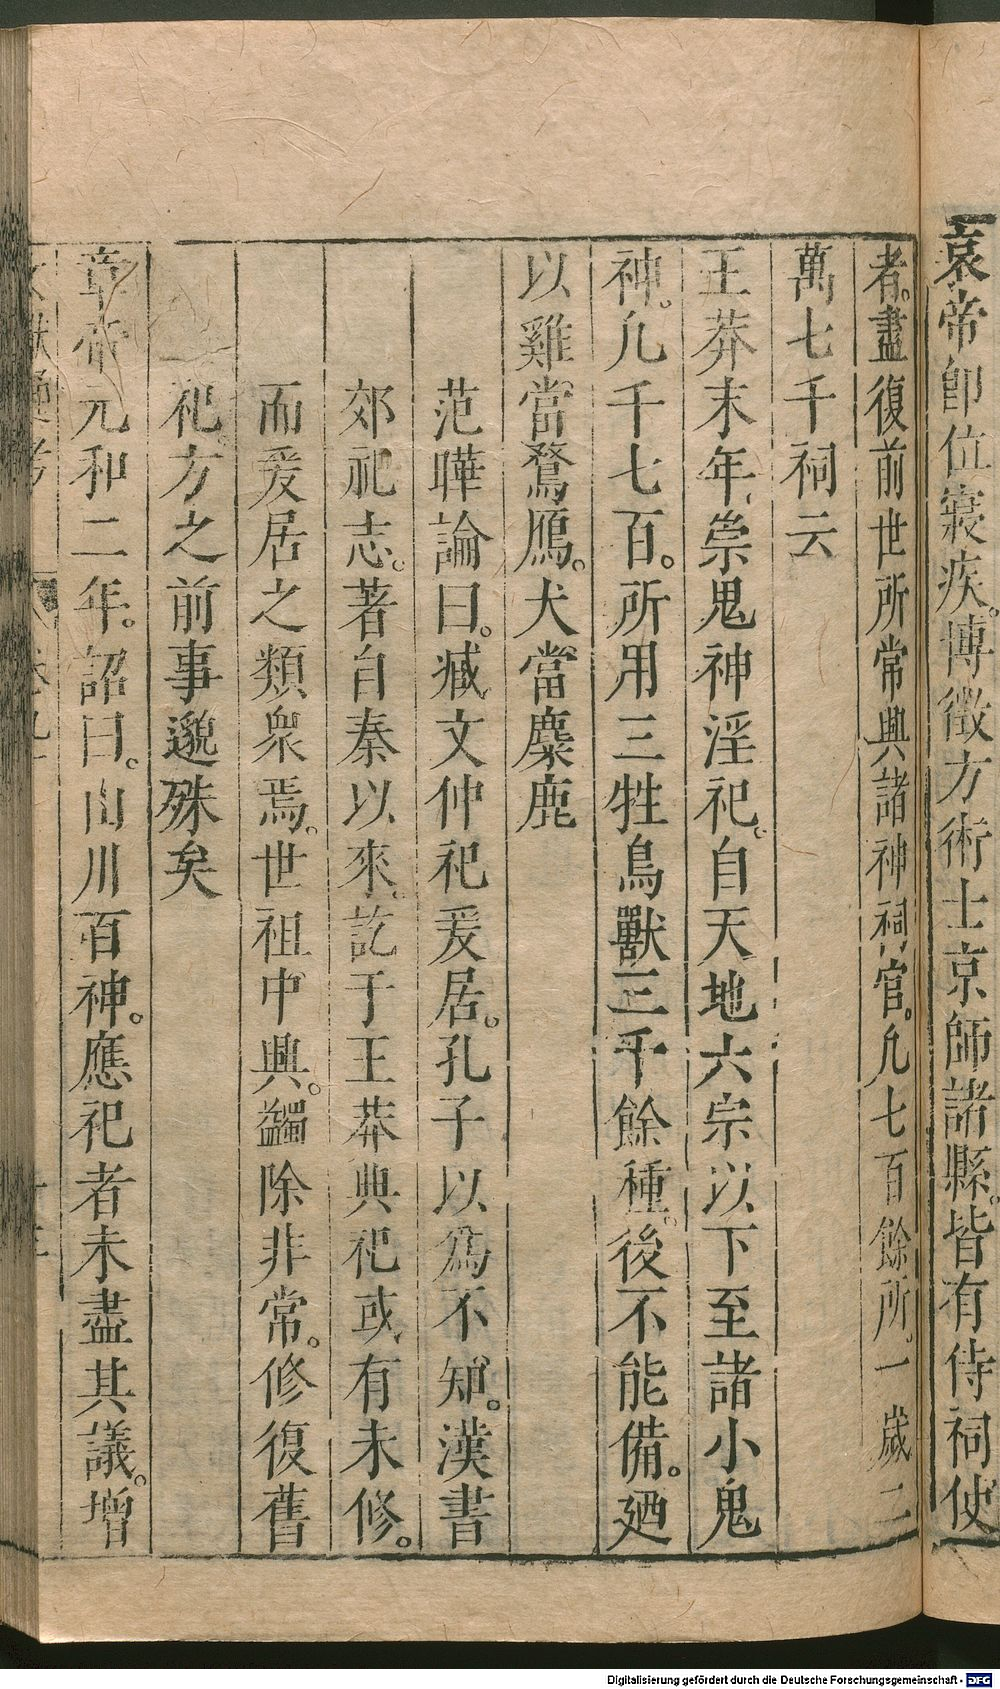 哀帝卽位寢疾。博徵方術士京師諸縣。皆有侍祠使
者。盡復前世所常興諸神祠官。凡七百餘所。一歲三
萬七千祠云
王莽末年。崇鬼神淫祀。自天地六宗以下至諸小鬼
神。凡千七百。所用三牲鳥獸三千餘種。後不能備。廼
以雞當鶩鴈。犬當麋鹿
范曄論曰。臧文仲祀爰居。孔子以爲不知。漢書
郊祀志。著自秦以來。訖于王莽典祀或有未修。
而爰居之類衆焉。世祖中興。蠲除非常。修復舊
祀。方之前事邈殊矣
章帝元和二年。詔曰。山川百神。應祀者未盡其議。增
文獻通考 卷九十
Digitalisierung gefördert durch die Deutsche Forschungsgemeinschaft - DFG